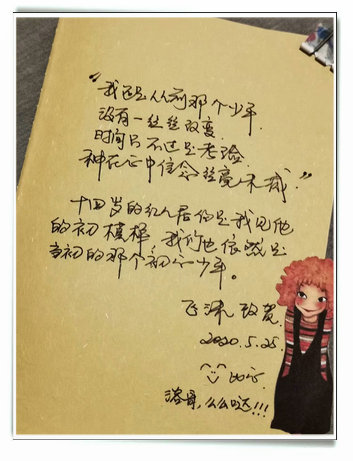 “我还是从前那个少年
没有一丝丝改变
时间只不过是考验
种在心中信念丝毫未减”
十四岁的红人居仍是我见他
的初模样，我们也依然是
当初的那个初心少年。
飞沫 致贺
2020.5.25
，么么哒!!!